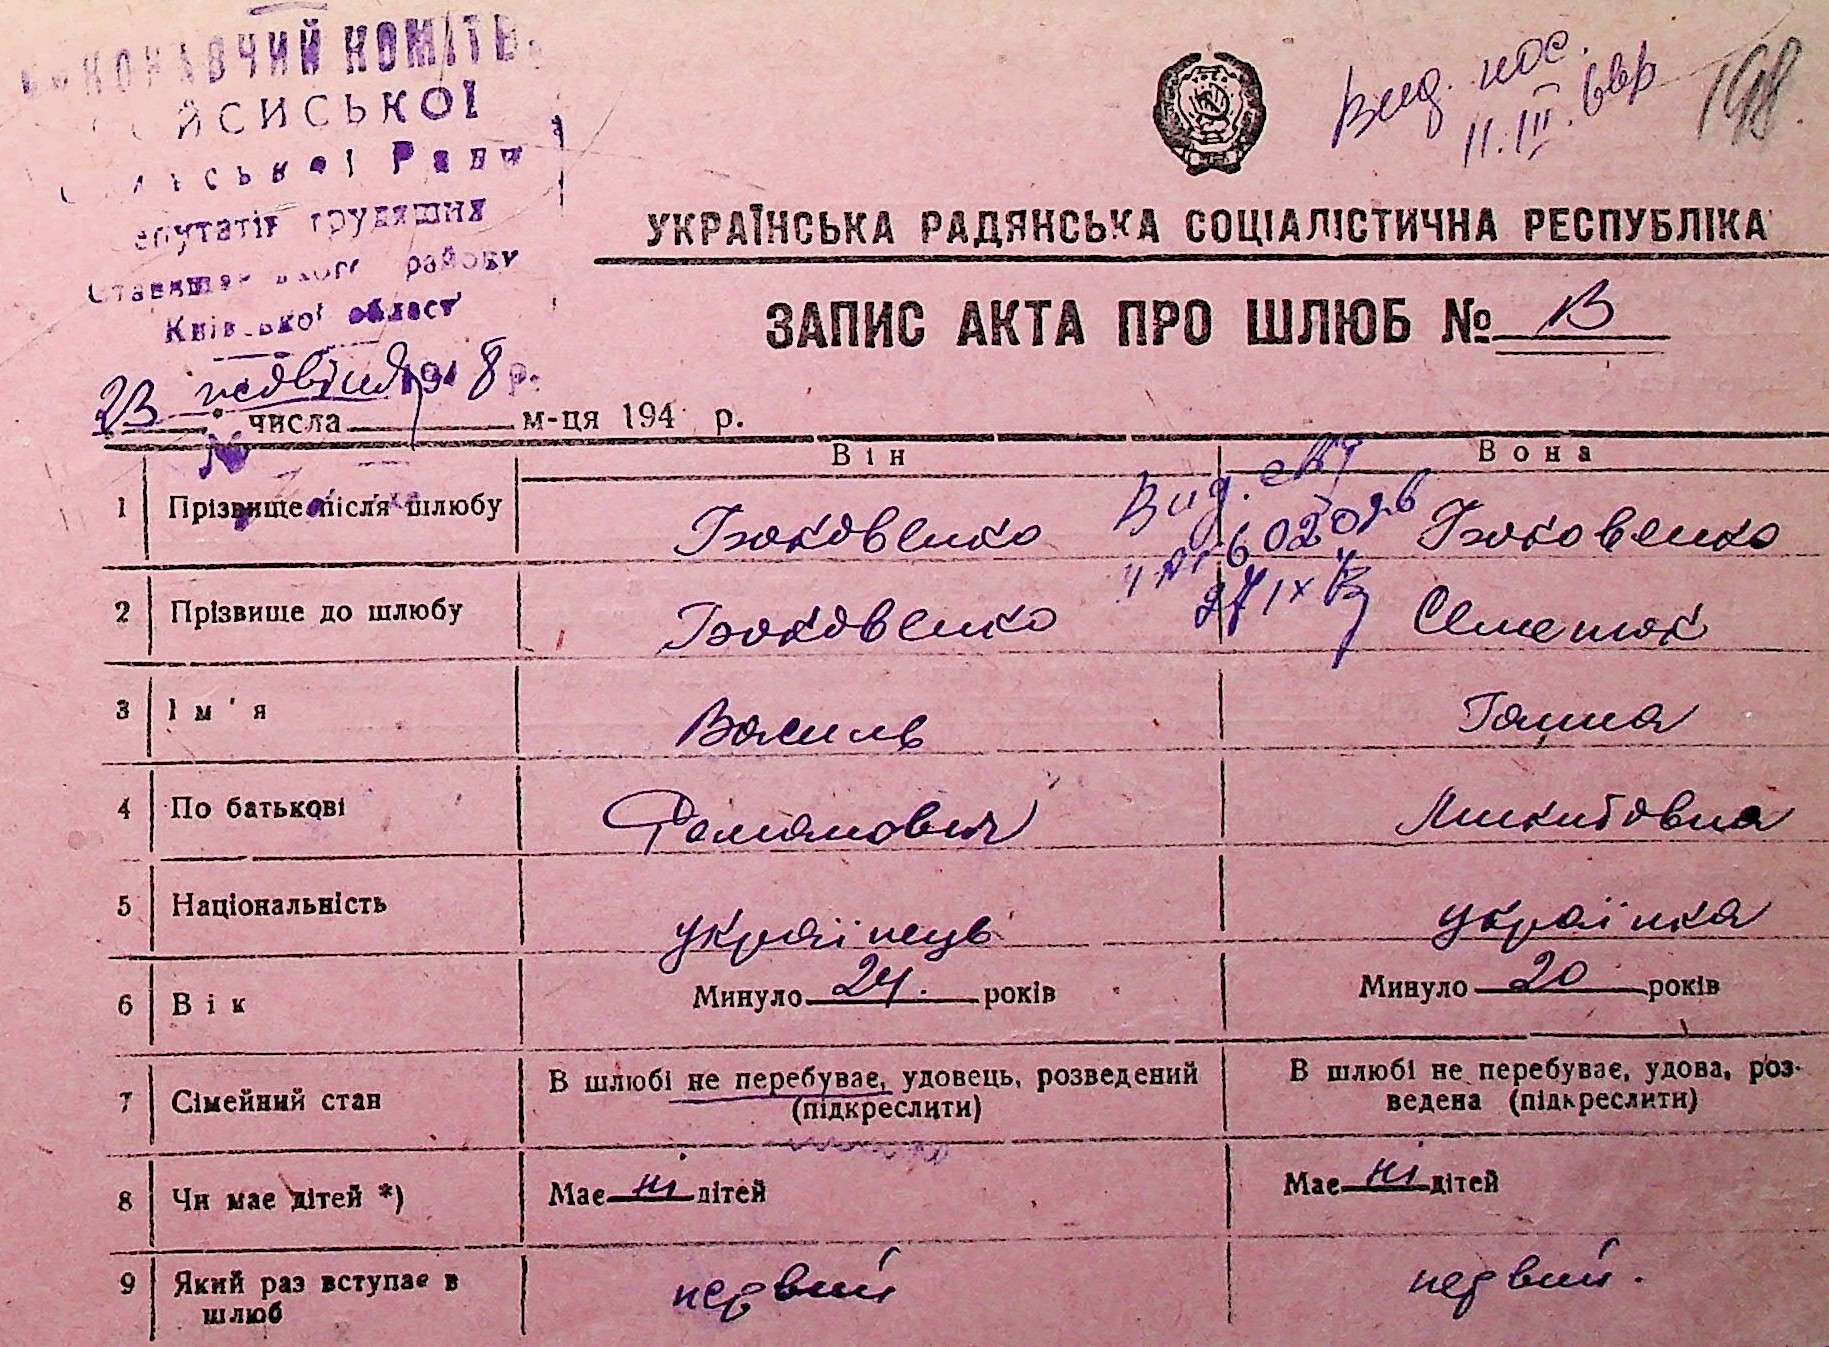 КОНАВЧИЙ КОМІТЕ
ЙСИСЬКОЇ
Ради
епутатів трудящих
району
Київської област
Вид.
11.III.
198.
УКРАЇНСЬКА РАДЯНСЬКА СОЦІАЛІСТИЧНА РЕСПУБЛІКА
ЗАПИС АКТА ПРО ШЛЮБ №
23 8 р.
числа м-ця 194 р.
Він Вона
1 Прізвище після шлюбу Яковенко Яковенко
2 Прізвище до шлюбу Яковенко Семенюк
Вид.
602020
27 IX
3 Ім'я Василь Ганна
4 По батькові Романович Микитовна
5 Національність українець українка
6 Вік Минуло 24. років Минуло 20 років
7 Сімейний стан В шлюбі не перебуває, удовець, розведений В шлюбі не перебуває, удова, роз-
(підкреслити) ведена (підкреслити)
8 Чи має дітей *) Має ні дітей Має ні дітей
9 Який раз вступає в первий первий.
шлюб